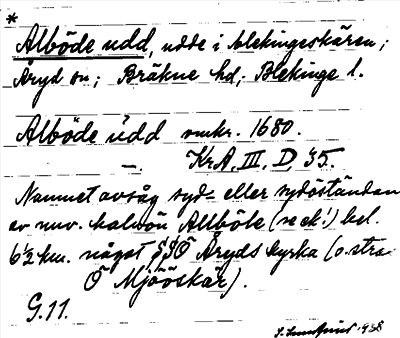 *
Alböde udd, udde i blekingeskären;
Åryd sn; Bräkne hd; Blekinge l.
Alböde üdd omkr. 1680.
—. KrA, III, D, 35.
Namnet avsåg syd- eller sydöständan
av nuv. halvön Allböle (se ek!) bel.
6½ km. något SSÖ Åryds kyrka (o. stra
Ö Mjööskär).
G.11.
1938